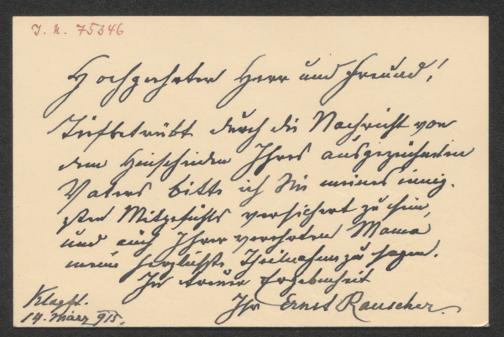 J. N. 75346
Hochgeehrter Herr und Freund!
Tiefbetrübt durch die Nachricht von
dem Hinscheiden Ihres ausgezeichneten
Vaters bitte ich Sie meines innig-
sten Mitgefühls versichert zu sein,
und auch Ihrer verehrten Mama
meine herzlichste Theilnahme zu sagen.
In treuer Ergebenheit
Ihr Ernst Rauscher.
Klagft.
14. März 915.